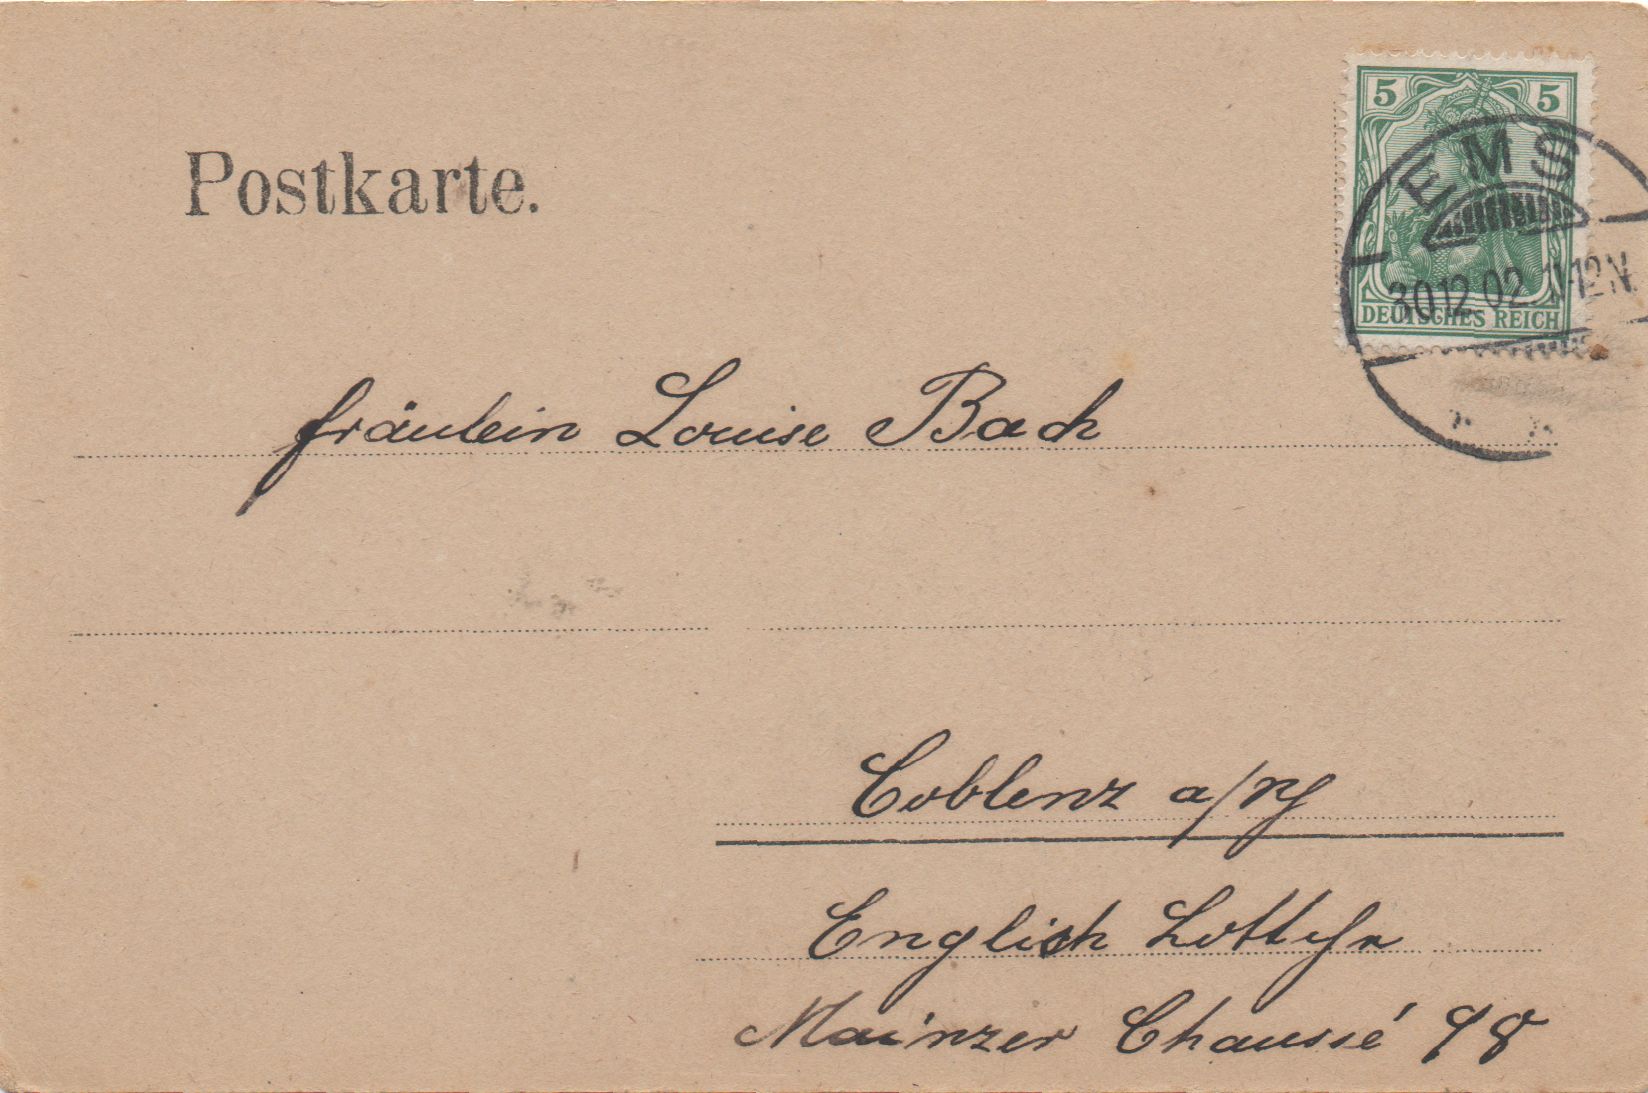 Postkarte.
5 5
EMS
30.12.02. 11-12 N.
DEUTSCHES REICH
Fräulein Louise Bach
Coblenz a/Rh
English
Mainzer Chaussé 98